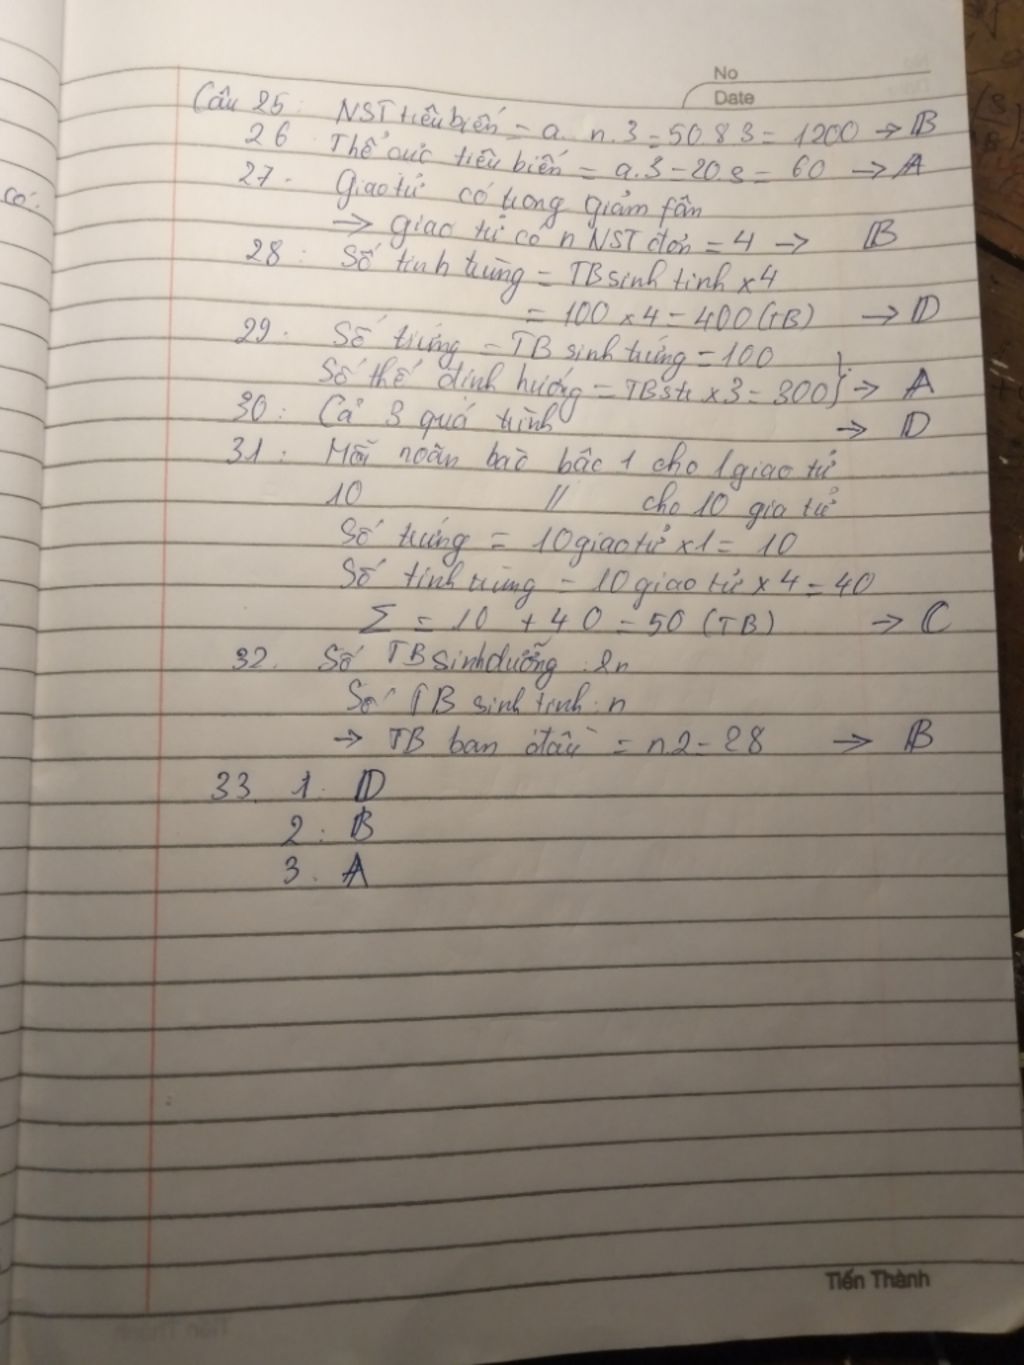 No
Date
Câu 25: NST tiêu biến = a. n. 3 = 50.8.3 = 1200 → B
26. Thể cực tiêu biến = a.3 = 20.3 = 60 → A
27. Giao tử có trong giảm fân
có.
→ giao tử có n NST đơn = 4 → B
28: Số tinh trùng = TB sinh tinh x 4
= 100 x 4 = 400 (TB) → D
29. Số trứng = TB sinh trứng = 100
Số thể định hướng = TBstr x 3 = 300} → A
30: Cả 3 quá trình → D
31: Mỗi noãn bào bậc 1 cho 1 giao tử
10 // cho 10 gia tử
Số trứng = 10 giao tử x 1 = 10
Số tinh trùng = 10 giao tử x 4 = 40
Σ = 10 + 40 = 50 (TB) → C
32. Số TB sinh dưỡng: 2n
Số TB sinh tinh: n
→ TB ban đầu = n.2 = 28 → B
33. 1. D
2: B
3. A
Tiến Thành